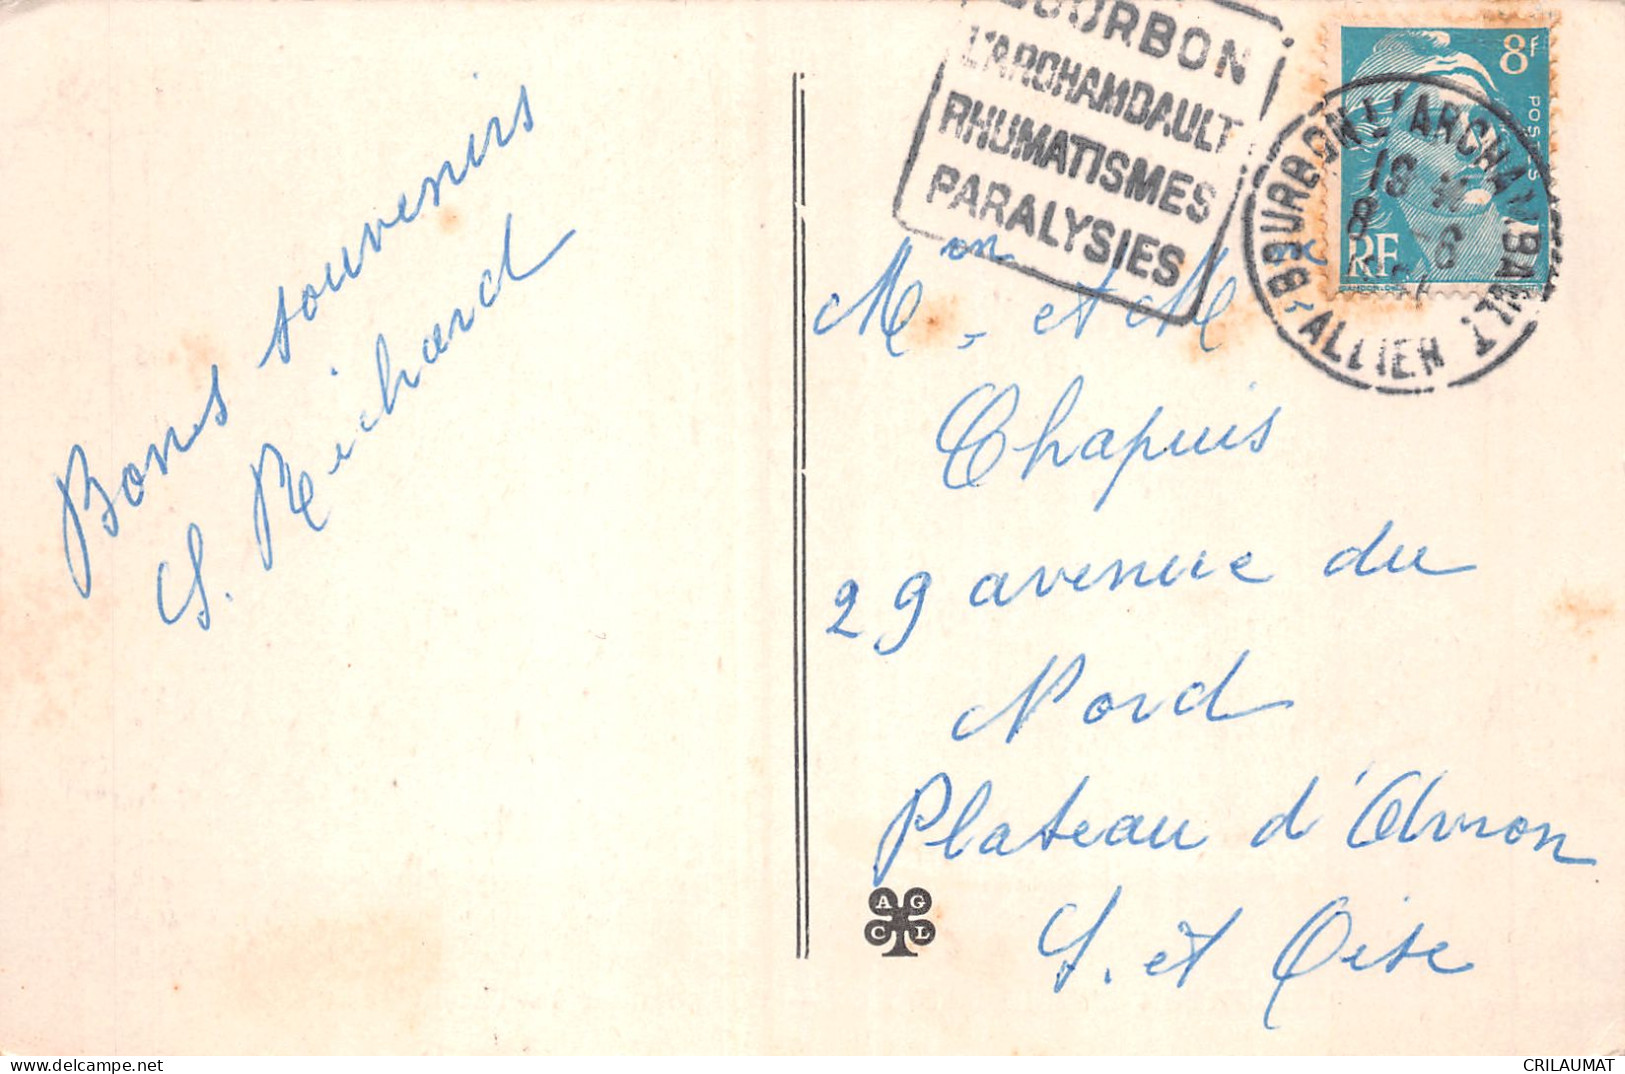 Bons souvenirs
S. Richard
BOURBON
L'ARCHAMBAULT
RHUMATISMES
PARALYSIES
8F
POSTES
RF
BOURBON L'ARCHAMBAULT
ALLIER
18
8 -6
Mon et M
Chapuis
29 avenue du
Nord
Plateau d'Avron
S. et Oise
A G
C L
delcampe.net
CRILAUMAT